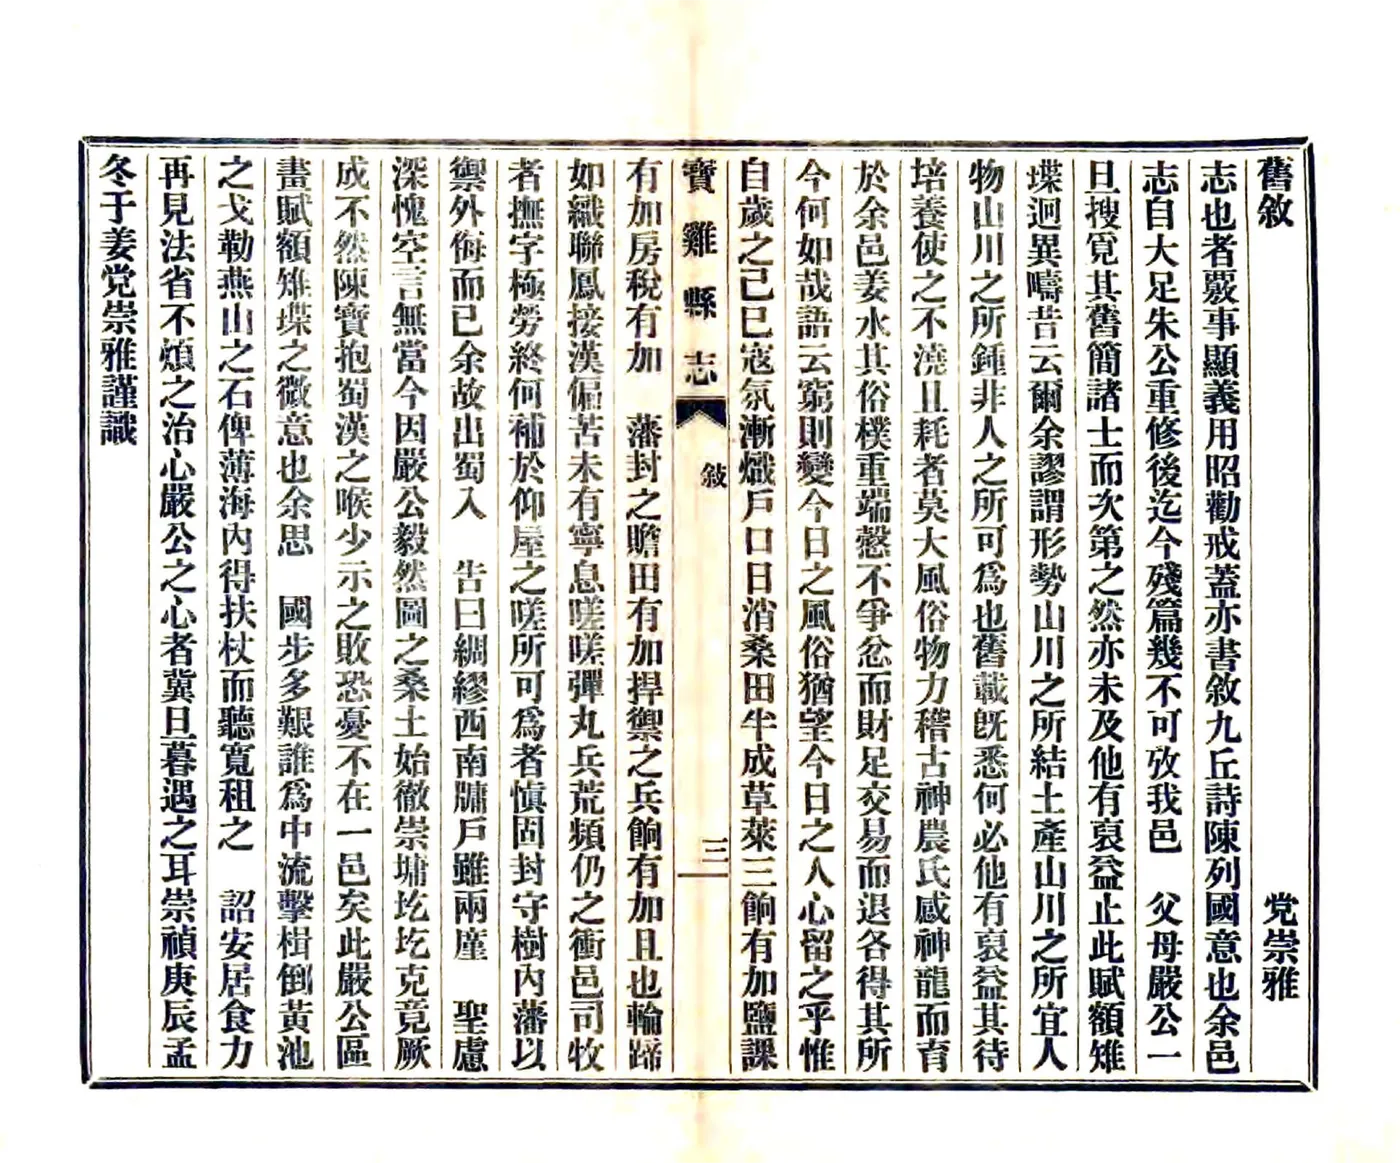 舊敘　党崇雅
志也者覈事顯義用昭勸戒蓋亦書敘九丘詩陳列國意也余邑
志自大足朱公重修後迄今殘篇幾不可攷我邑　父母嚴公一
旦搜覓其舊簡諸士而次第之然亦未及他有裒益止此賦額雉
堞迥異疇昔云爾余謬謂形勢山川之所結土產山川之所宜人
物山川之所鍾非人之所可為也舊載旣悉何必他有裒益其待
培養使之不澆且耗者莫大風俗物力稽古神農氏感神龍而育
於余邑姜水其俗樸重端愨不爭忿而財足交易而退各得其所
今何如哉語云窮則變今日之風俗猶望今日之人心留之乎惟
自歲之己巳寇氛漸熾戶口日消桑田半成草萊三餉有加鹽課
寶雞縣志　敘　三
有加房稅有加　藩封之贍田有加捍禦之兵餉有加且也輪蹄
如織聯鳳接漢偏苦未有寧息嗟嗟彈丸兵荒頻仍之衝邑司牧
者撫字極勞終何補於仰屋之嗟所可為者慎固封守樹內藩以
禦外侮而已余故出蜀入　告曰綢繆西南牖戶雖兩廑　聖慮
深愧空言無當今因嚴公毅然圖之桑土始徹崇墉圪圪克竟厥
成不然陳寶抱蜀漢之喉少示之敗恐憂不在一邑矣此嚴公區
畫賦額雉堞之微意也余思　國步多艱誰為中流擊楫倒黃池
之戈勒燕山之石俾薄海內得扶杖而聽寬租之　詔安居食力
再見法省不煩之治心嚴公之心者冀旦暮遇之耳崇禎庚辰孟
冬于姜党崇雅謹識